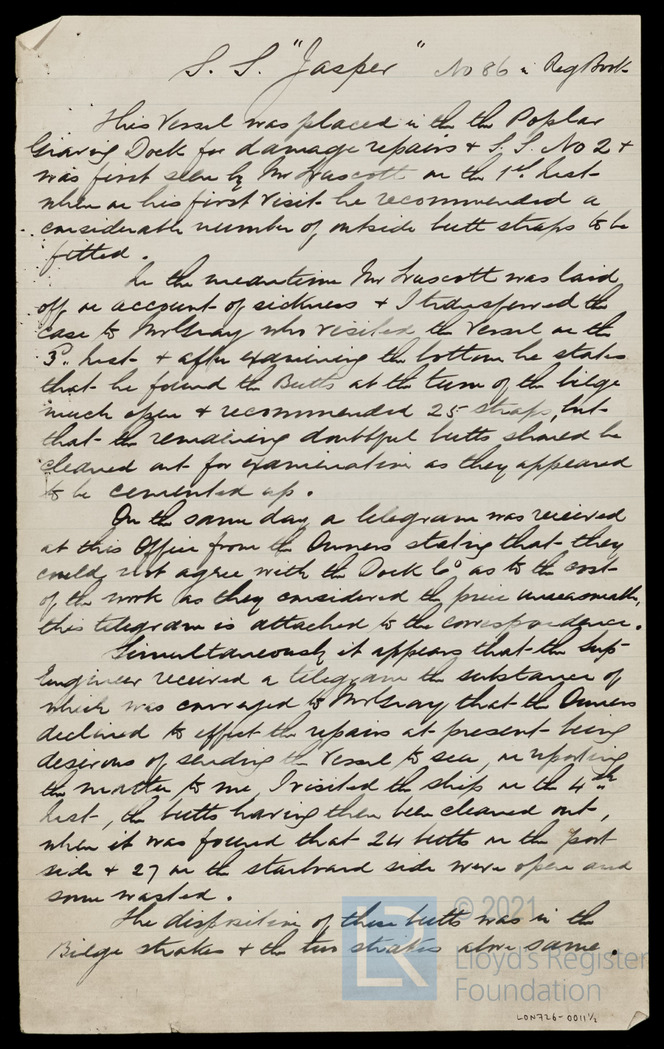 S. S. "Jasper" No 86 in Reg Book
This Vessel was placed in the the Poplar
Graving Dock for damage repairs & S.S. No 2 &
was first seen by Mr Truscott on the 1st Inst
when on his first visit he recommended a
considerable number of outside butt straps to be
fitted.
In the meantime Mr Truscott was laid
off on account of sickness & I transferred the
case to Mr Gray who visited the Vessel on the
3d. Inst & after examining the bottom he states
that he found the Butts at the turn of the bilge
much open & recommended 25 straps, but
that the remaining doubtful butts should be
cleaned out for examination as they appeared
to be cemented up.
On the same day a telegram was received
at this Office from the Owners stating that they
could not agree with the Dock Co as to the cost
of the work as they considered the price unreasonable,
this telegram is attached to the correspondence.
Simultaneously it appears that the Sup
Engineer received a telegram the substance of
which was conveyed to Mr Gray that the Owners
declined to effect the repairs at present being
desirous of sending the Vessel to sea, on reporting
the matter to me, I visited the ship on the 4th
Inst, the butts having then been cleaned out,
when it was found that 24 butts on the port
side & 27 on the starboard side were open and
some wasted.
The disposition of these butts was in the
Bilge strakes & the two strakes above same.
LR © 2021
Lloyd's Register
Foundation
LON726-0011½